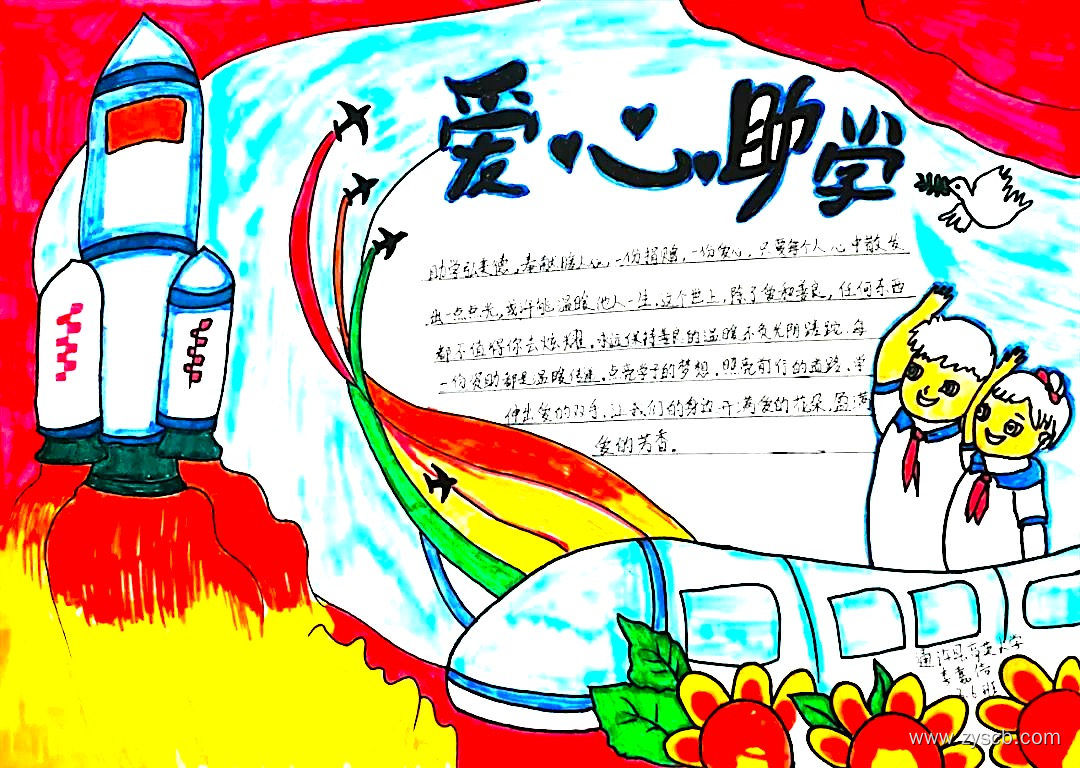 爱心助学
助学弘美德,奉献暖人心,一份捐赠,一份爱心,只要每个人心中散发
出一点点光,或许能温暖他人一生,这个世上,除了爱和善良,任何东西
都不值得你去炫耀,永远保持善良的温暖不负光阴蹉跎.每
一份资助都是温暖传递,点亮学子的梦想,照亮前行的道路,
伸出爱的双手,让我们的身边开满爱的花朵,盈满
爱的芳香。
通许县
李嘉
班
www.zyscb.com